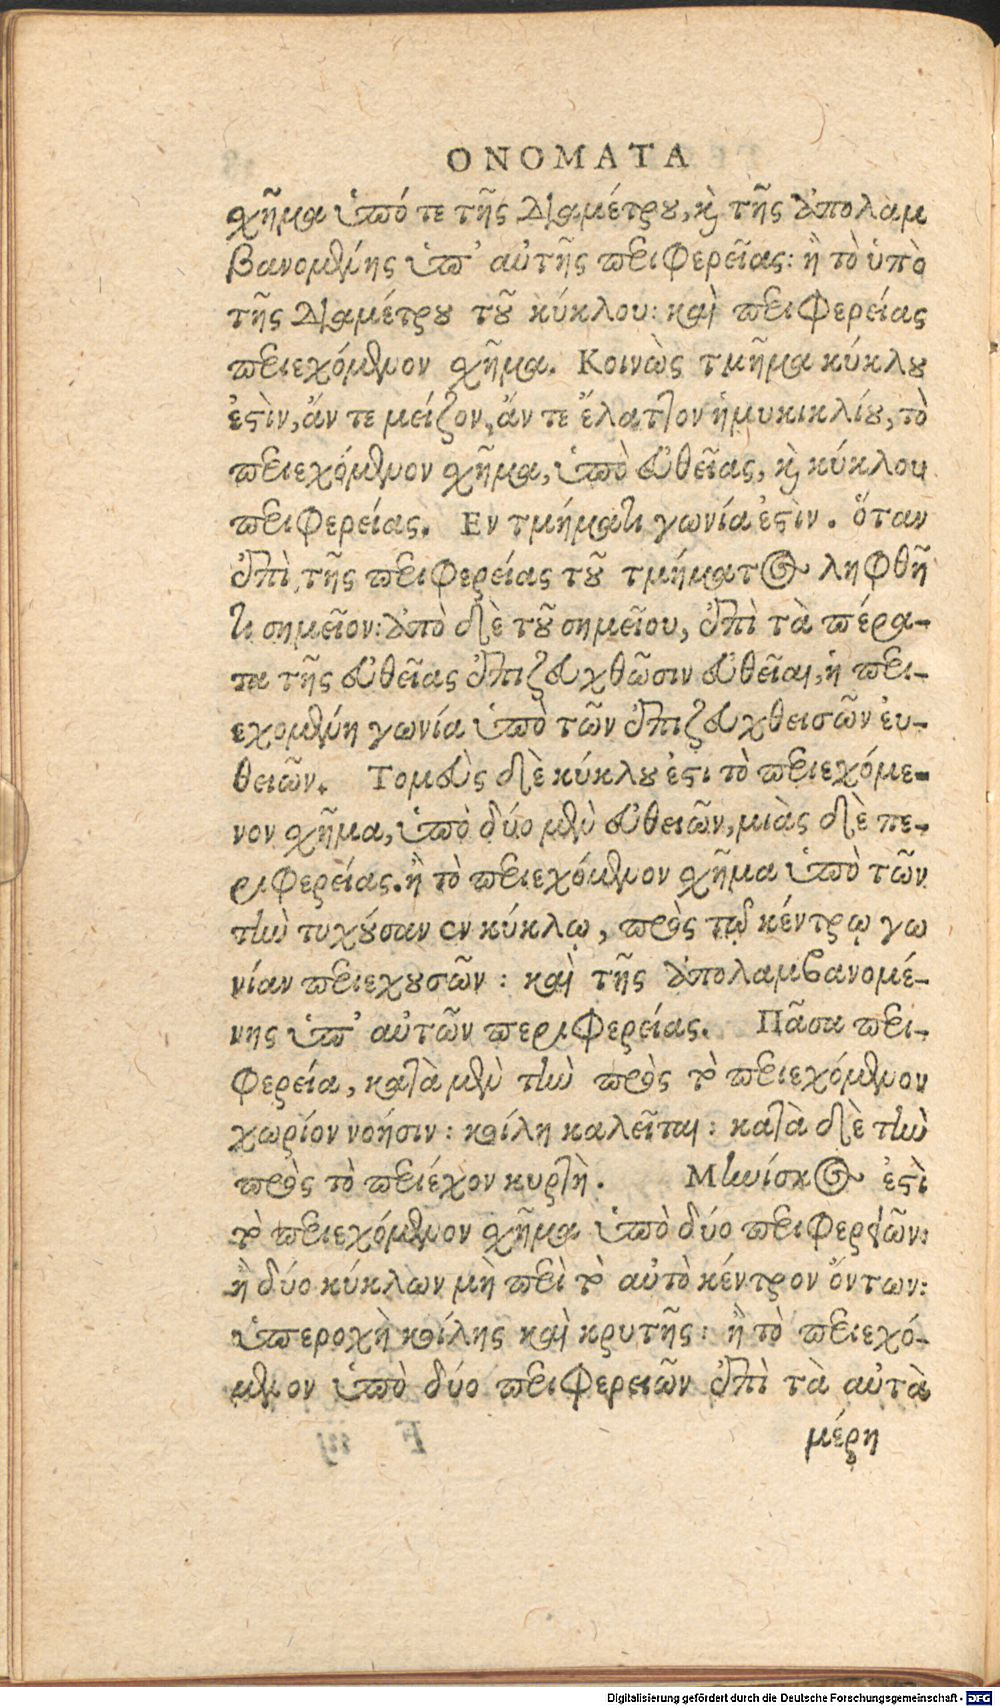 ΟΝΟΜΑΤΑ
χῆμα ὑπό τε τῆς διαμέτρου, καὶ τῆς ἀπολαμ
βανομένης ὑπ' αὐτῆς περιφερείας: ἢ τὸ ὑπὸ
τῆς διαμέτρου τοῦ κύκλου: καὶ περιφερείας
περιεχόμενον χῆμα. Κοινῶς τμῆμα κύκλου
ἐστὶν, ἄν τε μείζον, ἄν τε ἔλαττον ἡμυκικλίου, τὸ
περιεχόμενον χῆμα, ὑπὸ εὐθείας, καὶ κύκλου
περιφερείας. Εν τμήματι γωνία ἐστὶν. ὅταν
ἐπὶ τῆς περιφερείας τοῦ τμήματος ληφθῆ
τι σημεῖον: ἀπὸ δὲ τοῦ σημείου, ἐπὶ τὰ πέρα-
τα τῆς εὐθείας ἐπιζευχθῶσιν εὐθεῖαι, ἡ περι-
εχομένη γωνία ὑπὸ τῶν ἐπιζευχθεισῶν ἐυ-
θειῶν. Τομεὺς δὲ κύκλου ἐστι τὸ περιεχόμε-
νον χῆμα, ὑπὸ δύο μὲν εὐθειῶν, μιὰς δὲ πε-
ριφερείας. ἢ τὸ περιεχόμενον χῆμα ὑπὸ τῶν
τὴν τυχοῦσαν ἐν κύκλῳ, πρὸς τῷ κέντρῳ γω
νίαν περιεχουσῶν: καὶ τῆς ἀπολαμβανομέ-
νης ὑπ' αὐτῶν περιφερείας. Πᾶσα περι-
φερεία, κατὰ μὲν τὴν πρὸς τὸ περιεχόμενον
χωρίον νοήσιν: κοίλη καλεῖται: κατὰ δὲ τὴν
πρὸς τὸ περιέχον κυρτὴ. Μηνίσκος ἐστὶ
τὸ περιεχόμενον χῆμα ὑπὸ δύο περιφερειῶν:
ἢ δύο κύκλων μὴ περὶ τὸ αὐτὸ κέντρον ὄντων:
ὑπεροχὴ κοίλης καὶ κρυτῆς: ἢ τὸ περιεχό-
μενον ὑπὸ δύο περιφερειῶν ἐπὶ τὰ αὐτὰ
μέρη
Digitalisierung gefördert durch die Deutsche Forschungsgemeinschaft - DFG